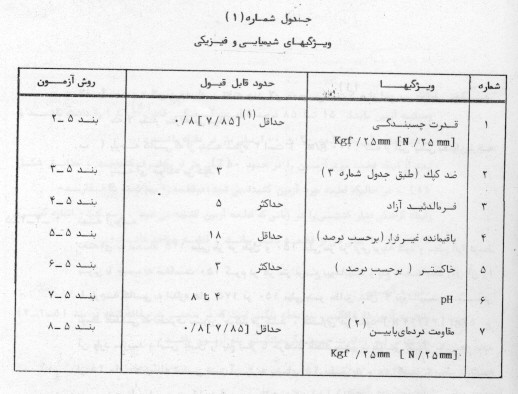 جدول شماره (۱)
ویژگیهای شیمیایی و فیزیکی
شماره ویژگیها حدود قابل قبول روش آزمون
۱ قدرت چسبندگی حداقل [۷/۸۵] ۰/۸ (۱) بند ۵ــ۲
Kgf / ۲۵mm [N / ۲۵mm]
۲ ضد کپک (طبق جدول شماره ۳) ۳ بند ۵ــ۳
۳ فرمالدئید آزاد حداکثر ۵ بند ۵ــ۴
۴ باقیمانده غیرفرار (برحسب درصد) حداقل ۱۸ بند ۵ــ۵
۵ خاکستر (برحسب درصد) حداکثر ۳ بند ۵ــ۶
۶ pH ۴ تا ۸ بند ۵ــ۷
۷ مقاومت دردمای پایین (۲) حداقل [۷/۸۵] ۰/۸ بند ۵ــ۸
Kgf / ۲۵mm [N / ۲۵mm]